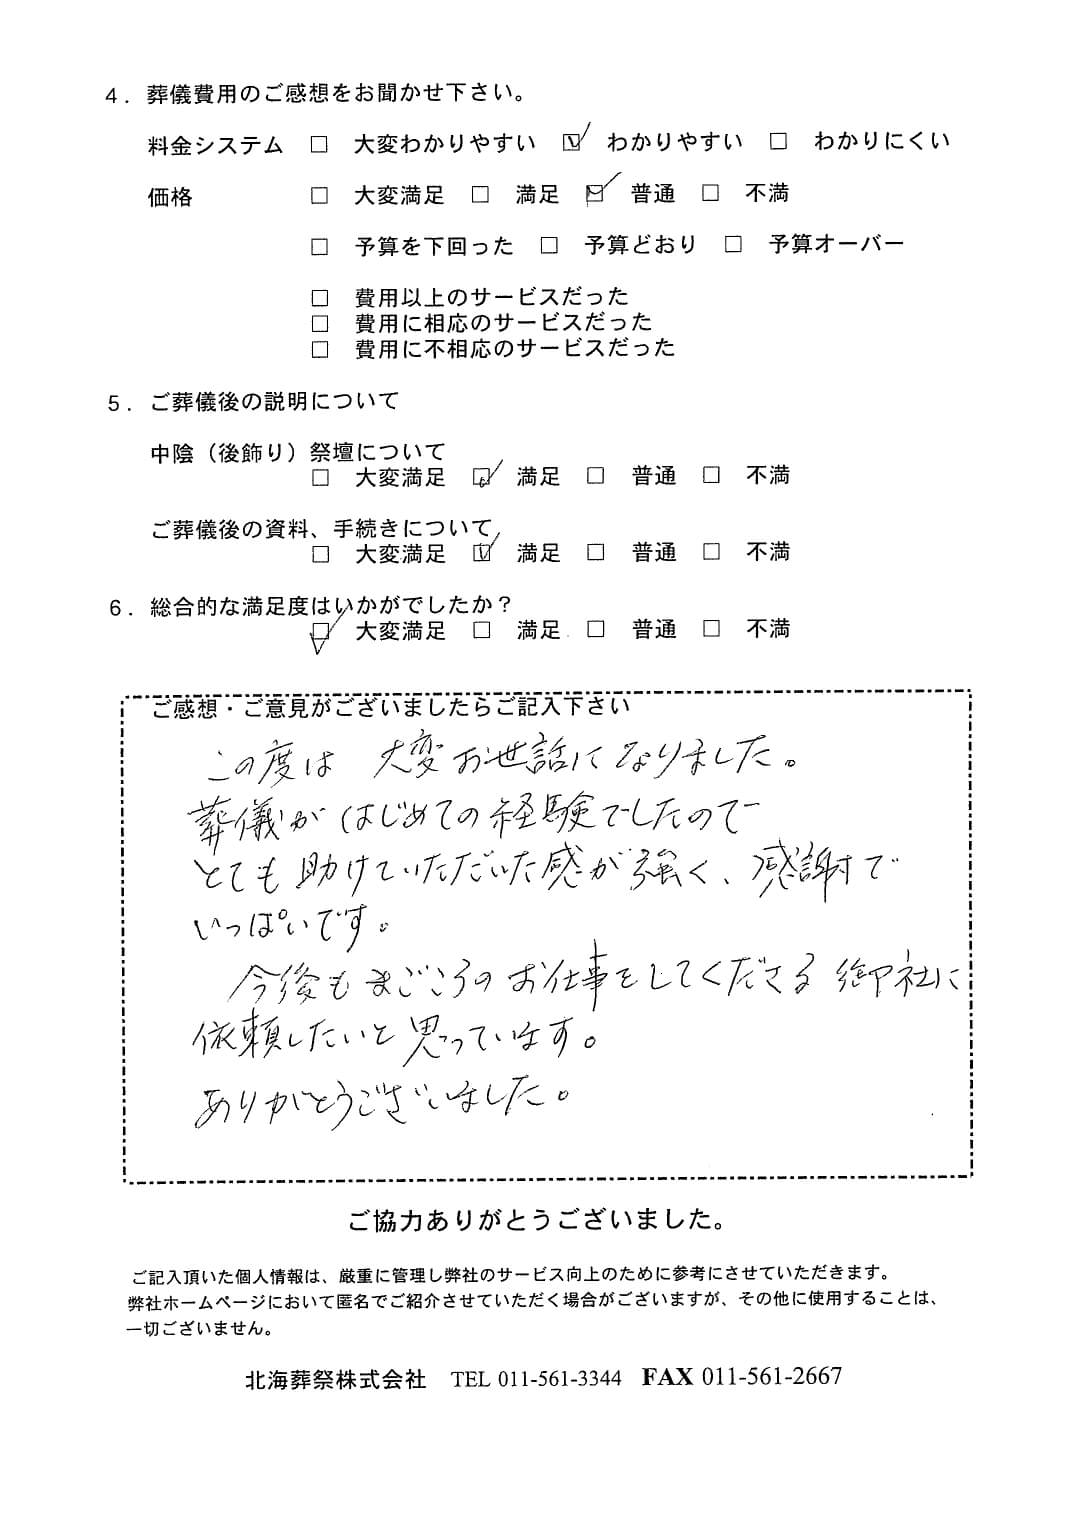 4．葬儀費用のご感想をお聞かせ下さい。
料金システム □ 大変わかりやすい ☑ わかりやすい □ わかりにくい
価格 □ 大変満足 □ 満足 ☑ 普通 □ 不満
□ 予算を下回った □ 予算どおり □ 予算オーバー
□ 費用以上のサービスだった
□ 費用に相応のサービスだった
□ 費用に不相応のサービスだった
5．ご葬儀後の説明について
中陰（後飾り）祭壇について
□ 大変満足 ☑ 満足 □ 普通 □ 不満
ご葬儀後の資料、手続きについて
□ 大変満足 ☑ 満足 □ 普通 □ 不満
6．総合的な満足度はいかがでしたか？
☑ 大変満足 □ 満足 □ 普通 □ 不満
ご感想・ご意見がございましたらご記入下さい
この度は 大変お世話になりました。
葬儀がはじめての経験でしたので
とても助けていただいた感が強く、感謝で
いっぱいです。
今後もまごころのお仕事をしてくださる御社に
依頼したいと思っています。
ありがとうございました。
ご協力ありがとうございました。
ご記入頂いた個人情報は、厳重に管理し弊社のサービス向上のために参考にさせていただきます。
弊社ホームページにおいて匿名でご紹介させていただく場合がございますが、その他に使用することは、
一切ございません。
北海葬祭株式会社 TEL 011-561-3344 FAX 011-561-2667